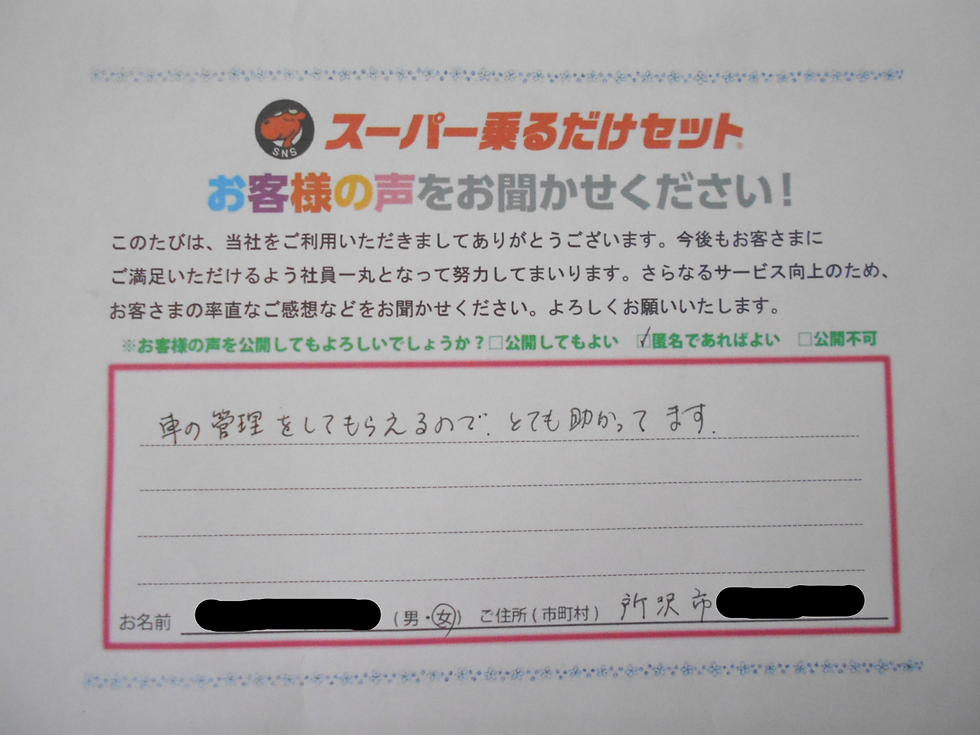 SNS
スーパー乗るだけセット®
お客様の声をお聞かせください!
このたびは、当社をご利用いただきましてありがとうございます。今後もお客さまに
ご満足いただけるよう社員一丸となって努力してまいります。さらなるサービス向上のため、
お客さまの率直なご感想などをお聞かせください。よろしくお願いいたします。
※お客様の声を公開してもよろしいでしょうか?□公開してもよい ☑匿名であればよい □公開不可
車の管理をしてもらえるので、とても助かってます。
お名前 (男・女) ご住所(市町村) 所沢市